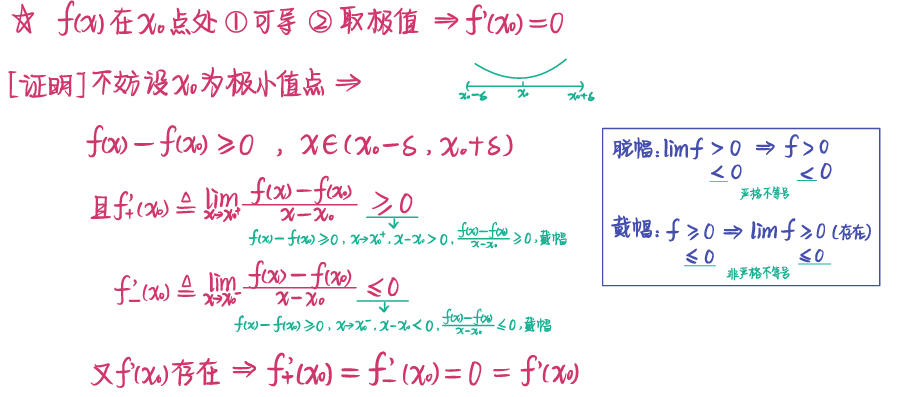 ☆ f(x)在x₀点处①可导②取极值 ⇒ f'(x₀)=0
[证明]不妨设x₀为极小值点 ⇒
x₀-δ x₀ x₀+δ
f(x)-f(x₀)≥0 , x∈(x₀-δ, x₀+δ)
且f'₊(x₀) ≜ lim x→x₀⁺ (f(x)-f(x₀))/(x-x₀) ≥0
f(x)-f(x₀)≥0, x→x₀⁺, x-x₀>0, (f(x)-f(x₀))/(x-x₀) ≥0, 戴帽
f'₋(x₀) ≜ lim x→x₀⁻ (f(x)-f(x₀))/(x-x₀) ≤0
f(x)-f(x₀)≥0, x→x₀⁻, x-x₀<0, (f(x)-f(x₀))/(x-x₀) ≤0, 戴帽
又f'(x₀)存在 ⇒ f'₊(x₀)=f'₋(x₀)=0=f'(x₀)
脱帽: lim f > 0 ⇒ f > 0
< 0 < 0
严格不等号
戴帽: f ≥ 0 ⇒ lim f ≥ 0 (存在)
≤ 0 ≤ 0
非严格不等号